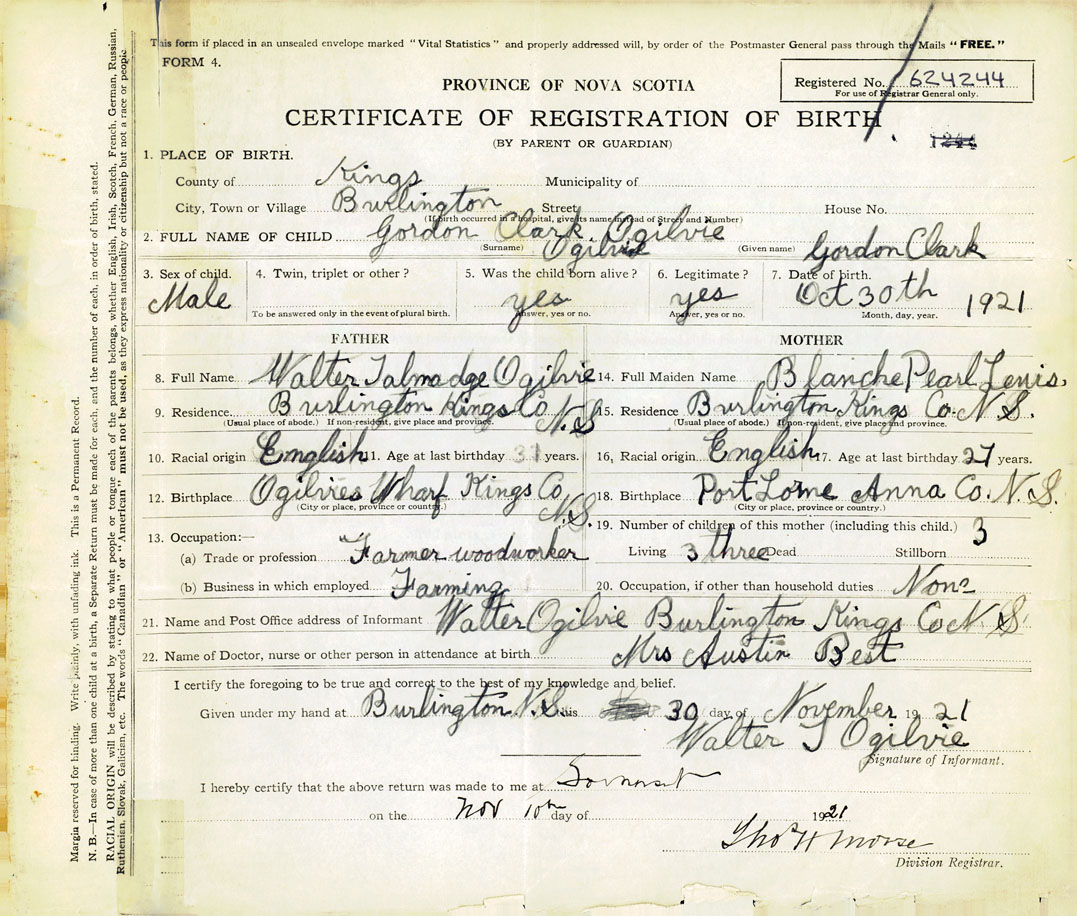 This form if placed in an unsealed envelope marked "Vital Statistics" and properly addressed will, by order of the Postmaster General pass through the Mails "FREE."
FORM 4.
PROVINCE OF NOVA SCOTIA
Registered No. 624244
For use of Registrar General only.
CERTIFICATE OF REGISTRATION OF BIRTH
(BY PARENT OR GUARDIAN)
1244
1. PLACE OF BIRTH.
County of Kings Municipality of
City, Town or Village Burlington Street House No.
(If birth occurred in a hospital, give its name instead of Street and Number)
2. FULL NAME OF CHILD Gordon Clark Ogilvie
(Surname) Ogilvie (Given name) Gordon Clark
3. Sex of child. Male
4. Twin, triplet or other?
To be answered only in the event of plural birth.
5. Was the child born alive? yes
Answer, yes or no.
6. Legitimate? yes
Answer, yes or no.
7. Date of birth. Oct 30th 1921
Month, day, year.
FATHER
8. Full Name Walter Talmadge Ogilvie
9. Residence Burlington Kings Co N.S
(Usual place of abode.) If non-resident, give place and province.
10. Racial origin English 11. Age at last birthday years.
12. Birthplace Ogilvies Wharf Kings Co N.S.
(City or place, province or country.)
13. Occupation:—
(a) Trade or profession Farmer woodworker
(b) Business in which employed Farming
MOTHER
14. Full Maiden Name Blanche Pearl Lewis.
15. Residence Burlington Kings Co. N.S.
(Usual place of abode.) If non-resident, give place and province.
16. Racial origin English 17. Age at last birthday 27 years.
18. Birthplace Port Lorne Anna Co. N.S.
(City or place, province or country.)
19. Number of children of this mother (including this child.) 3
Living 3 three Dead Stillborn
20. Occupation, if other than household duties None
21. Name and Post Office address of Informant Walter Ogilvie Burlington Kings Co N.S.
22. Name of Doctor, nurse or other person in attendance at birth Mrs Austin Best
I certify the foregoing to be true and correct to the best of my knowledge and belief.
Given under my hand at Burlington N.S. this 30 day of November 1921
Walter T Ogilvie
Signature of Informant.
I hereby certify that the above return was made to me at Somerset
on the Nov 10th day of 1921
Thos H Morse
Division Registrar.
Margin reserved for binding. Write plainly, with unfading ink. This is a Permanent Record.
N. B.—In case of more than one child at a birth, a Separate Return must be made for each, and the number of each, in order of birth, stated.
RACIAL ORIGIN will be described by stating to what people or tongue each of the parents belongs, whether English, Irish, Scotch, French, German, Russian,
Ruthenian, Slovak, Galician, etc. The words "Canadian" or "American" must not be used, as they express nationality or citizenship but not a race or people